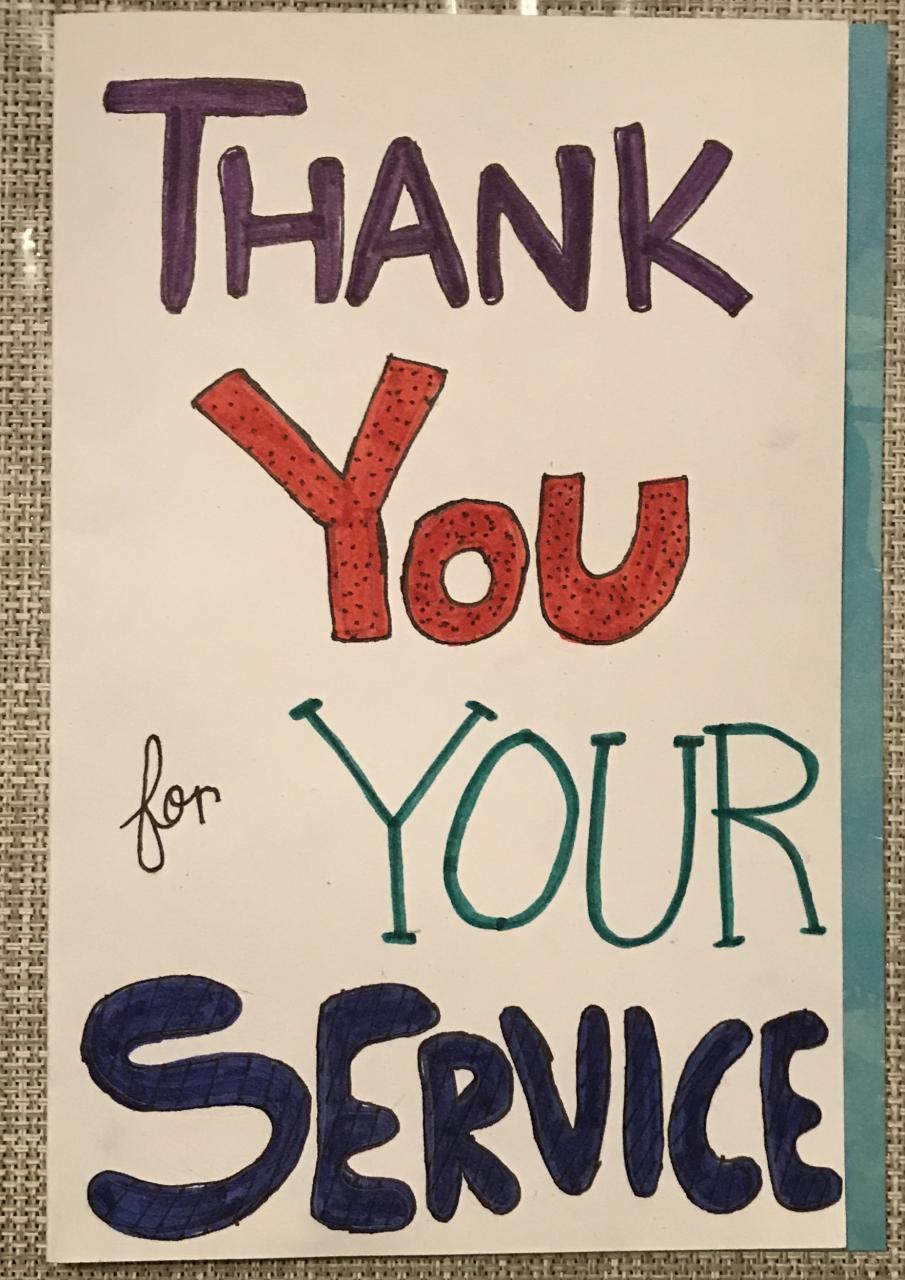 THANK
YOU
for YOUR
SERVICE